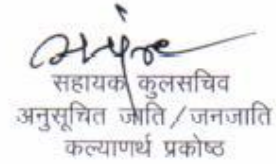 सहायक कुलसचिव
अनुसूचित जाति / जनजाति
कल्याणर्थ प्रकोष्ठ